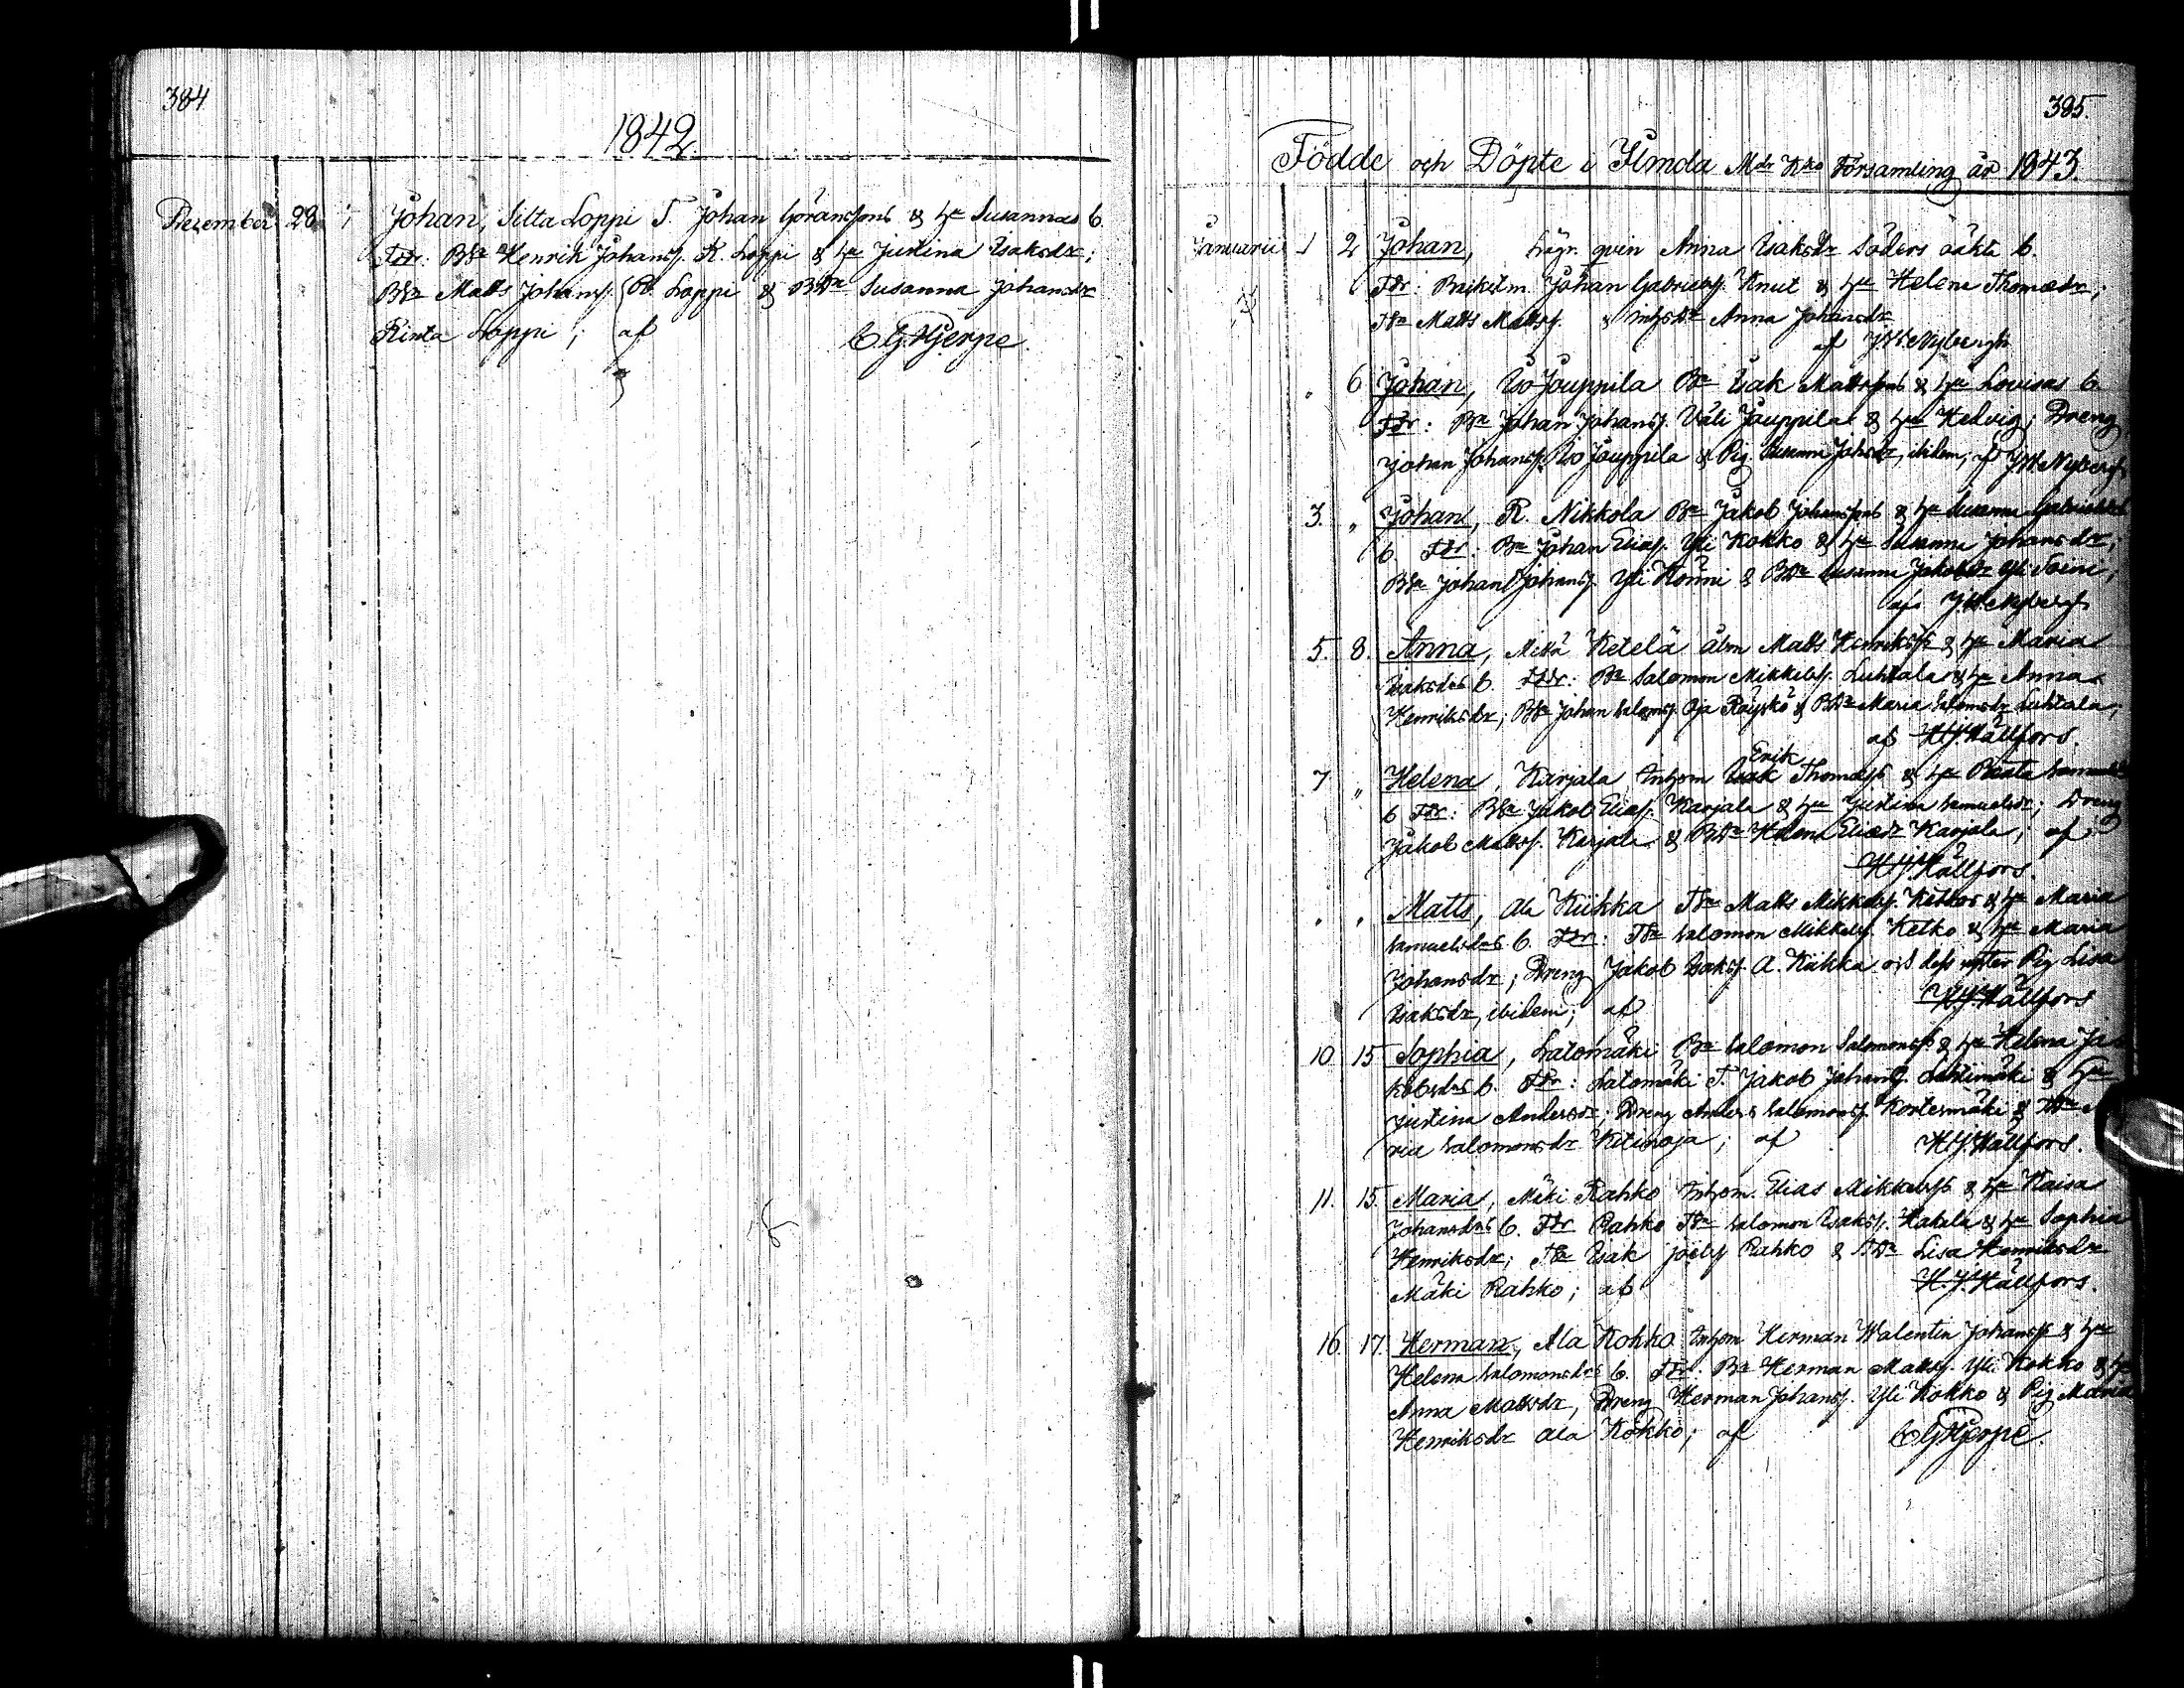 384
1842
December 28 Johan, Silta Loppi T. Johan Göranssons & hu Susannas b.
Fdr: BSn Henrik Johansf. K. Loppi & hu Justina Isaksdr;
BSn Matts Johansf. Loppi & BDr Susanna Johansdr
Rinta Loppi; af C G Hjerpe.
385.
Födde och Döpte i Ilmola Mdr Kko Församling år 1843.
Januarii 1 2 Johan, qvin Anna Isaksdr Söders oäkta b.
Fdr: Johan Gabrielsf. Knut & hu Helena Thomædr;
Matts Mattsf. & Anna Johansdr
af J W Nybergh
" 6 Johan, Iso Jouppila Bn Isak Mattssons & hu Lovisas b.
Fdr: Bn Johan Johansf. Väli Jouppila & hu Hedvig; Dreng
Johan Johansf. Iso Jouppila & Pig. Susanna Johsdr, ibidem; af J W Nybergh
3. " Johan, R. Nikkola Bn Jakob Johanssons & hu Susanna Gabrielsdrs
b. Fdr: Bn Johan Eliasf. Yli Kokko & hu Susanna Johansdr;
BSn Johan Johansf. Yli Könni & BDr Susanna Jakobsdr Yli
af J W Nybergh
5. 8. Anna, Ketelä Matts Henrikss & hu Maria
Isaksdrs b. Fdr: Bn Salomon Mikkelsf. Luhtala & hu Anna
Henriksdr; BSn Johan Salomsf. Oja Räyskö & BDr Maria Salomsdr Luhtala;
af H J Hällfors.
Erik
7. " Helena, Karjala Inhom Isak Thomæss & hu Beata
b. Fdr: BSn Jakob Eliasf. Karjala & hu Justina Samuelsdr; Dreng
Jakob Mattsf. Karjala & BDr Helena Eliædr Karjala; af
H J Hällfors.
" " Matts, Ala Kiikka TSn Matts Mikkelsf. Ketkos & hu Maria
Samuelsdrs b. Fdr: TSn Salomon Mikkelsf. Ketko & hu Maria
Johansdr; Dreng Jakob Isaksf. A. Kiikka och dess syster Pig Lisa
Isaksdr, ibidem; af H J Hällfors
10 15 Sophia, Latomäki Bn Salomon Salomonss & hu Helena Ja-
kobsdrs b. Fdr: Latomäki T. Jakob Johansf. Lehtimäki & hu
Justina Andersdr; Dreng Anders Salomonsf. Kortesmäki & TDr
ria Salomonsdr Kitinoja; af H J Hällfors.
11. 15. Maria, Mäki Rahko Inhom. Elias Mikkelss & hu Kaisa
Johansdrs b. Fdr Rahko TSn Salomon Isaksf. Hakala & hu Sophia
Henriksdr; TSn Isak Joelsf Rahko & TDr Lisa Henriksdr
Mäki Rahko; af H. J. Hällfors.
16. 17. Herman, Ala Kokko Inhom Herman Walentin Johanss & hu
Helena Salomonsdrs b. Fdr: Bn Herman Mattsf. Yli Kokko & hu
Anna Mattsdr, Dreng Herman Johansf. Yli Kokko & Pig Maria
Henriksdr Ala Kokko; af C G Hjerpe.